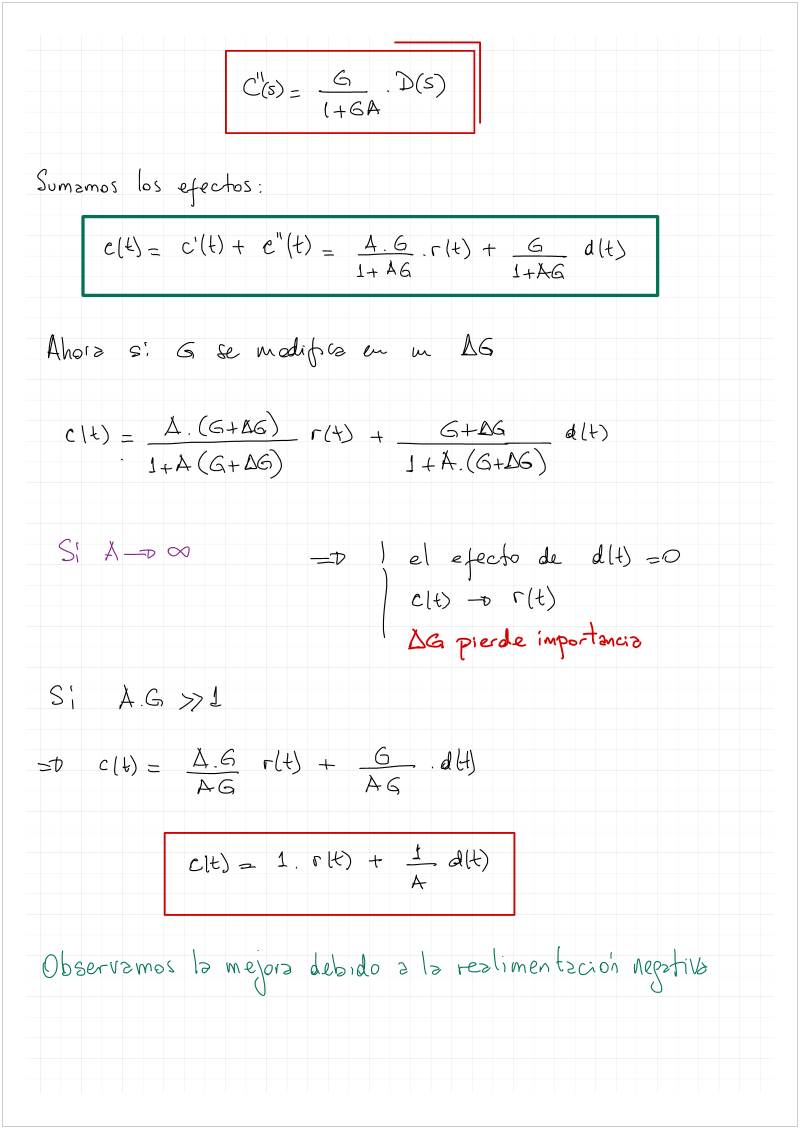 C''(s) = G / (1+GA) . D(s)
Sumamos los efectos:
c(t) = c'(t) + c''(t) = A.G / (1+AG) . r(t) + G / (1+AG) d(t)
Ahora si G se modifica en un ΔG
c(t) = A.(G+ΔG) / (1+A(G+ΔG)) r(t) + (G+ΔG) / (1+A.(G+ΔG)) d(t)
Si A → ∞ ⇒ | el efecto de d(t) = 0
c(t) → r(t)
ΔG pierde importancia
Si A.G >> 1
⇒ c(t) = A.G / AG r(t) + G / AG . d(t)
c(t) = 1. r(t) + 1 / A d(t)
Observamos la mejora debido a la realimentación negativa